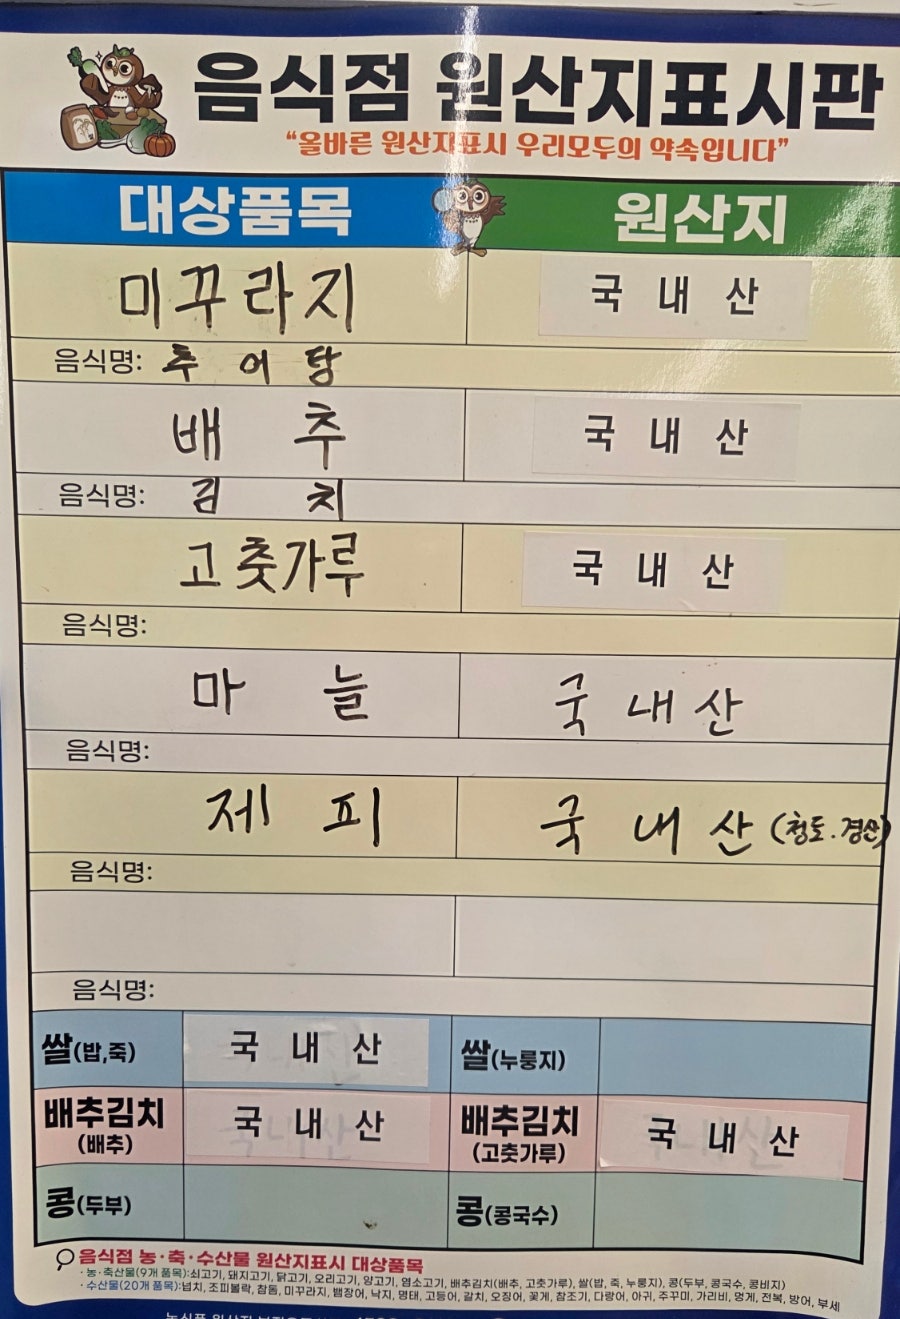 음식점 원산지표시판
“올바른 원산지표시 우리모두의 약속입니다”
대상품목 원산지
미꾸라지 국내산
음식명: 추어탕
배추 국내산
음식명: 김치
고춧가루 국내산
음식명:
마늘 국내산
음식명:
제피 국내산 (청도.경산)
음식명:
음식명:
쌀(밥,죽) 국내산 쌀(누룽지)
배추김치(배추) 국내산 배추김치(고춧가루) 국내산
콩(두부) 콩(콩국수)
음식점 농·축·수산물 원산지표시 대상품목
·농·축산물(9개 품목):쇠고기, 돼지고기, 닭고기, 오리고기, 양고기, 염소고기, 배추김치(배추, 고춧가루), 쌀(밥, 죽, 누룽지), 콩(두부, 콩국수, 콩비지)
·수산물(20개 품목):넙치, 조피볼락, 참돔, 미꾸라지, 뱀장어, 낙지, 명태, 고등어, 갈치, 오징어, 꽃게, 참조기, 다랑어, 아귀, 주꾸미, 가리비, 멍게, 전복, 방어, 부세